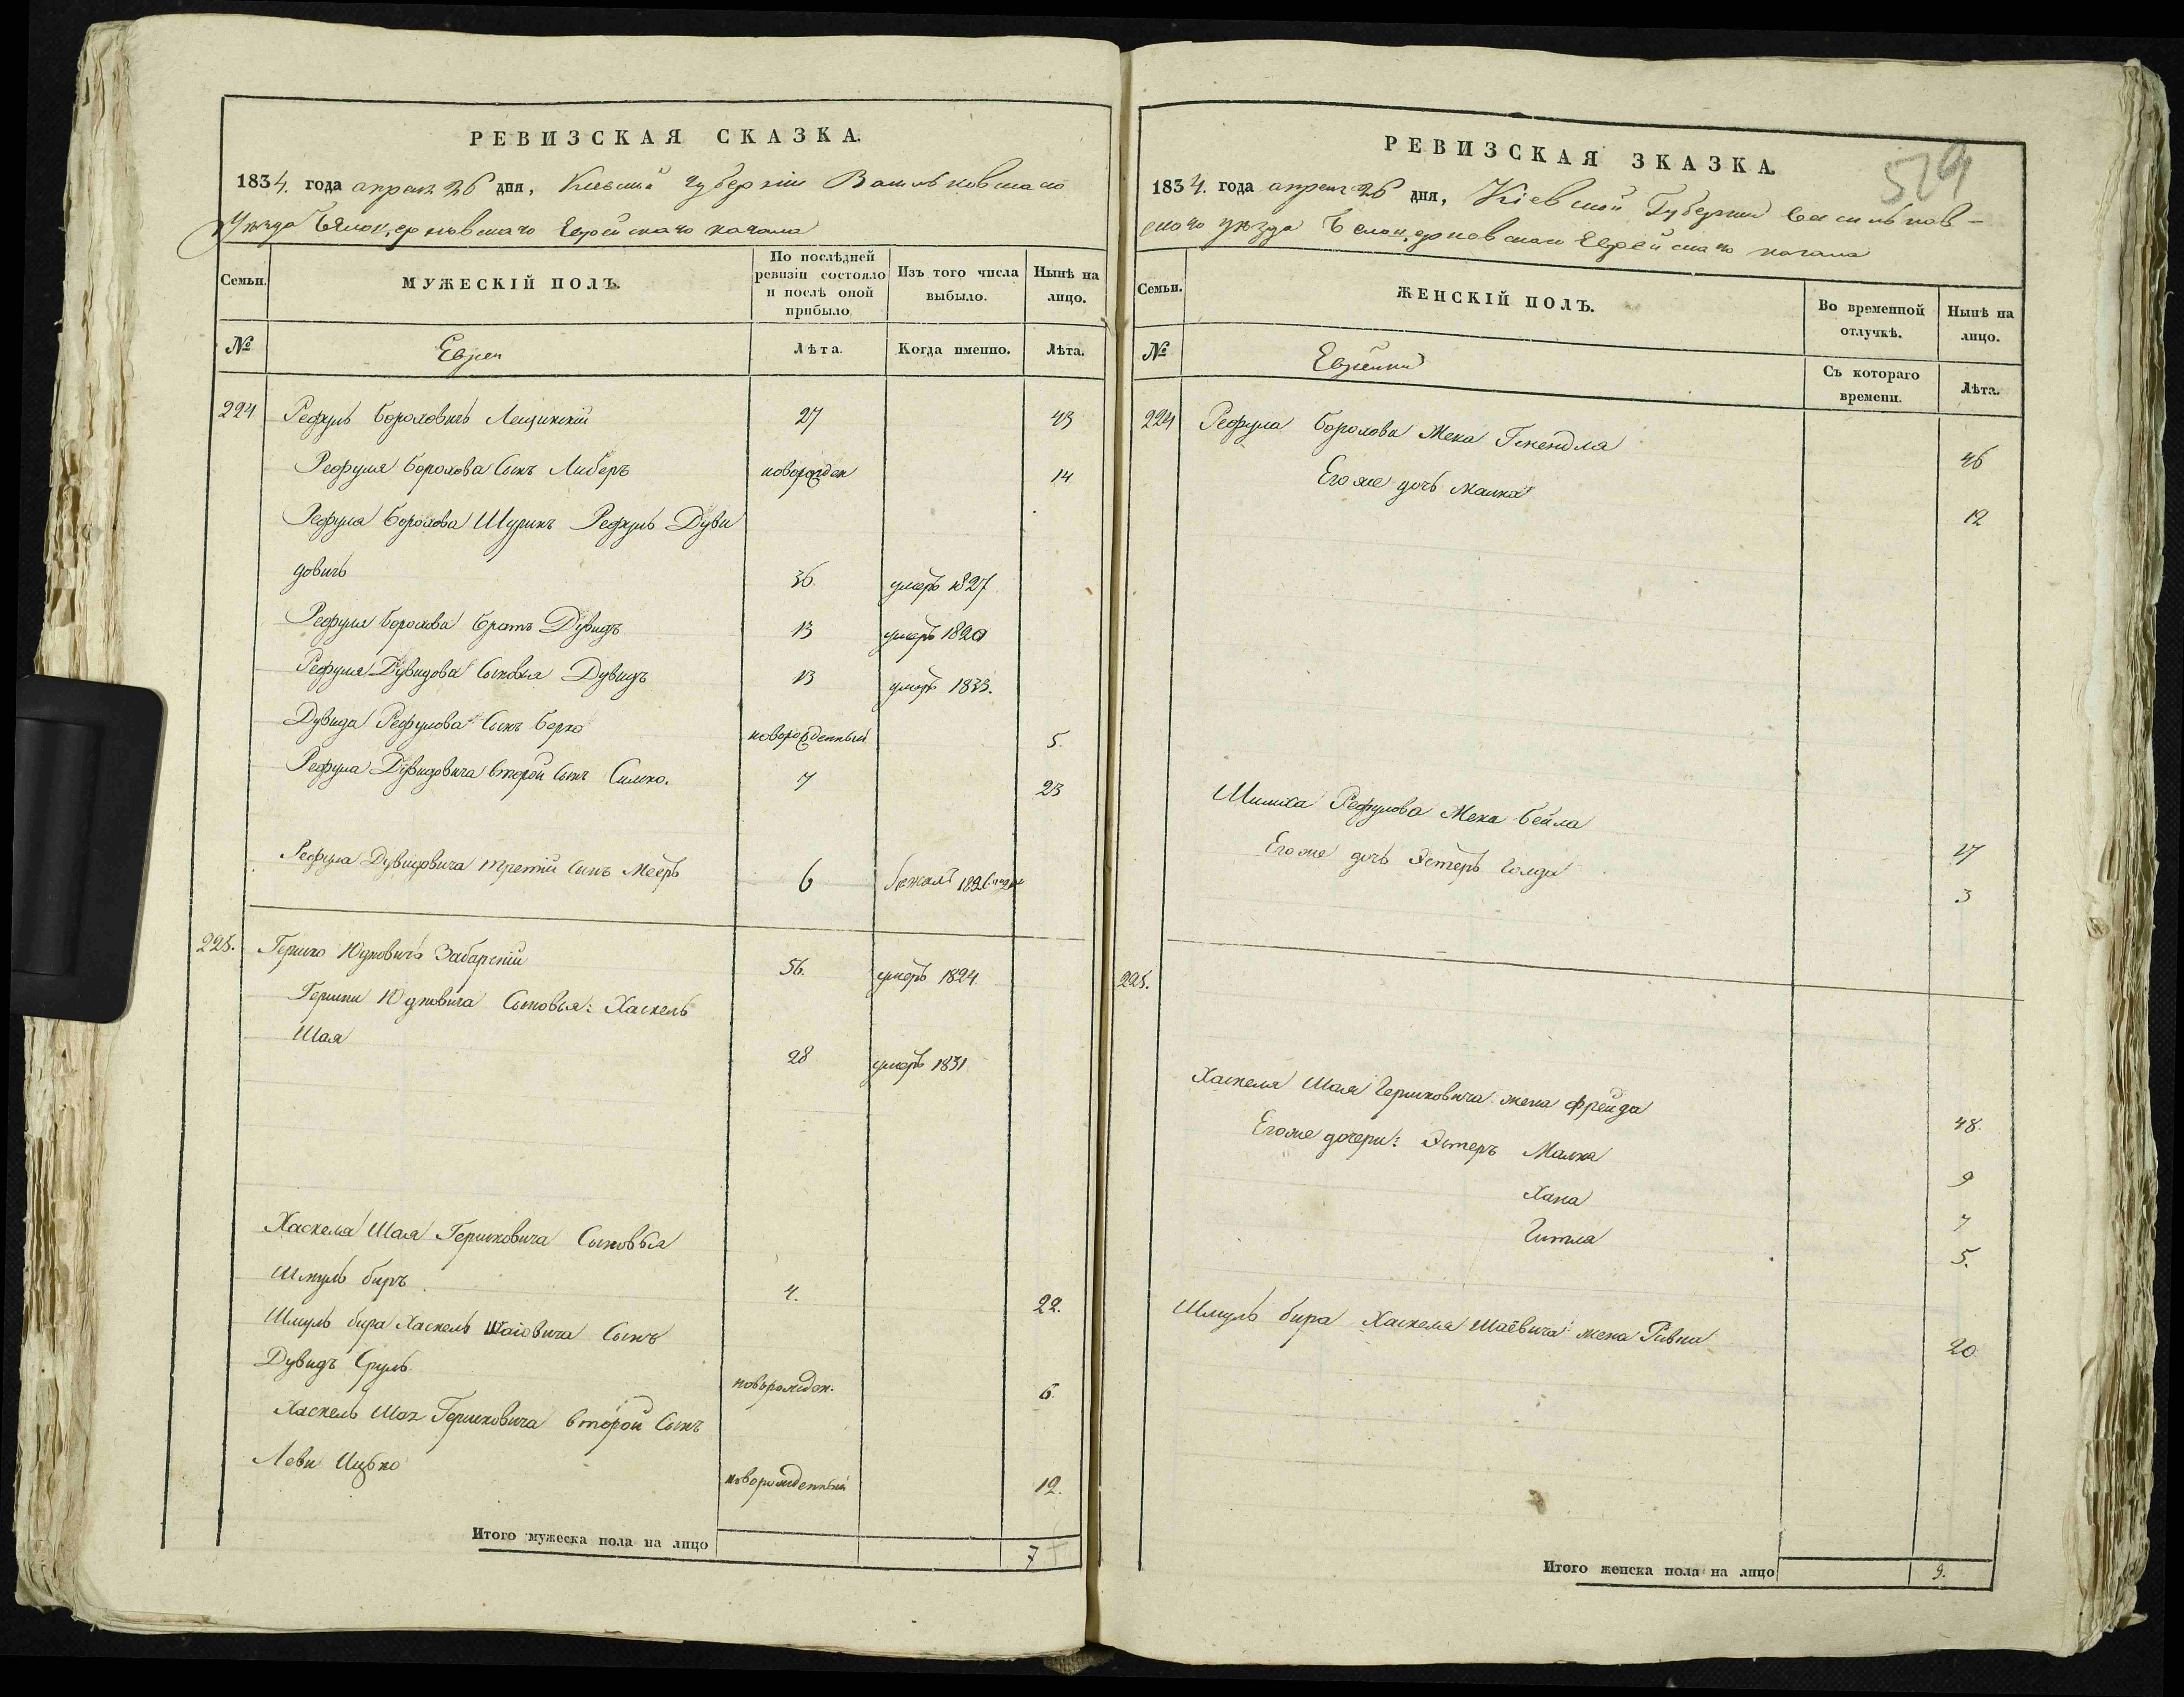 РЕВИЗСКАЯ СКАЗКА.
1834. года апреля 26 дня, Киевской губернии Васильковскаго
Уезда Белоцерковскаго Еврейскаго кагала
Семьи. МУЖЕСКІЙ ПОЛЪ. По послѣдней ревизіи состояло и послѣ оной прибыло Изъ того числа выбыло. Нынѣ на лицо.
№ Евреи Лѣта. Когда именно. Лѣта.
224 Рефуль Бороховичъ Лещинскій 27 43
Рефуля Борохова Сынъ Либеръ новорожден 14
Рефуля Борохова Шуринъ Рефуль Дуви
довичъ 36. умеръ 1827
Рефуля Борохова братъ Дувидъ 13 умеръ 1820
Рефуля Дувидова Сыновья Дувидъ 13 умеръ 1833.
Дувида Рефулова Сынъ Берко новорожденный 5.
Рефула Дувидовича второй Сынъ Симха. 7 23
Рефула Дувидовича третій Сынъ Мееръ 6 бежалъ 1826
225. Гершко Юдковичъ Збарскій 56. умеръ 1824
Гершки Юдковича Сыновья: Хаскель
Шая 28 умеръ 1831
Хаскеля Шая Гершковича Сыновья
Шмуль биръ 4. 22.
Шмуль бира Хаскель Шаіовича Сынъ
Дувидъ Сруль новорожден. 6
Хаскель Шая Гершковича второй Сынъ
Леви Ицько новорожденный 12.
Итого мужеска пола на лицо 7
529
РЕВИЗСКАЯ ЗКАЗКА.
1834. года апреля 26 дня, Кіевской Губернии Васильков-
скаго уезда Белоцерковскаго Еврейскаго кагала
Семьи. ЖЕНСКІЙ ПОЛЪ. Во временной отлучкѣ. Нынѣ на лицо.
№ Еврейки Съ котораго времени. Лѣта.
224 Рефула Борохова Жена Гнендля 46
Его же дочь Малка 12
Шимха Рефулова Жена Бейла 27
Его же дочь Эстеръ Голда 3
225.
Хаскеля Шая Гершковича жена Фрейда 48.
Его же дочери: Эстеръ Малка 9
Хана 7
Гитля 5.
Шмуль бира Хаскеля Шаёвича жена Ривка 20
Итого женска пола на лицо 9.